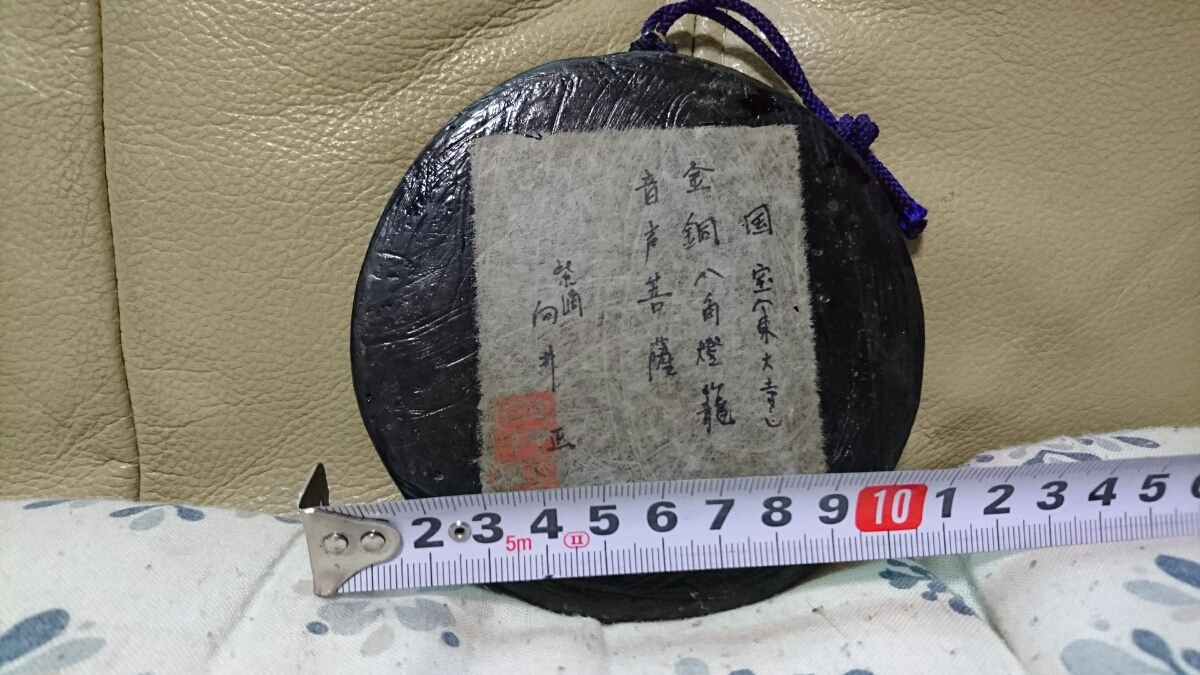 国宝東大寺
金銅八角燈籠
音声菩薩
向井
正
2 3 4 5 6 7 8 9 10 1 2 3 4 5 6
5m Ⅱ